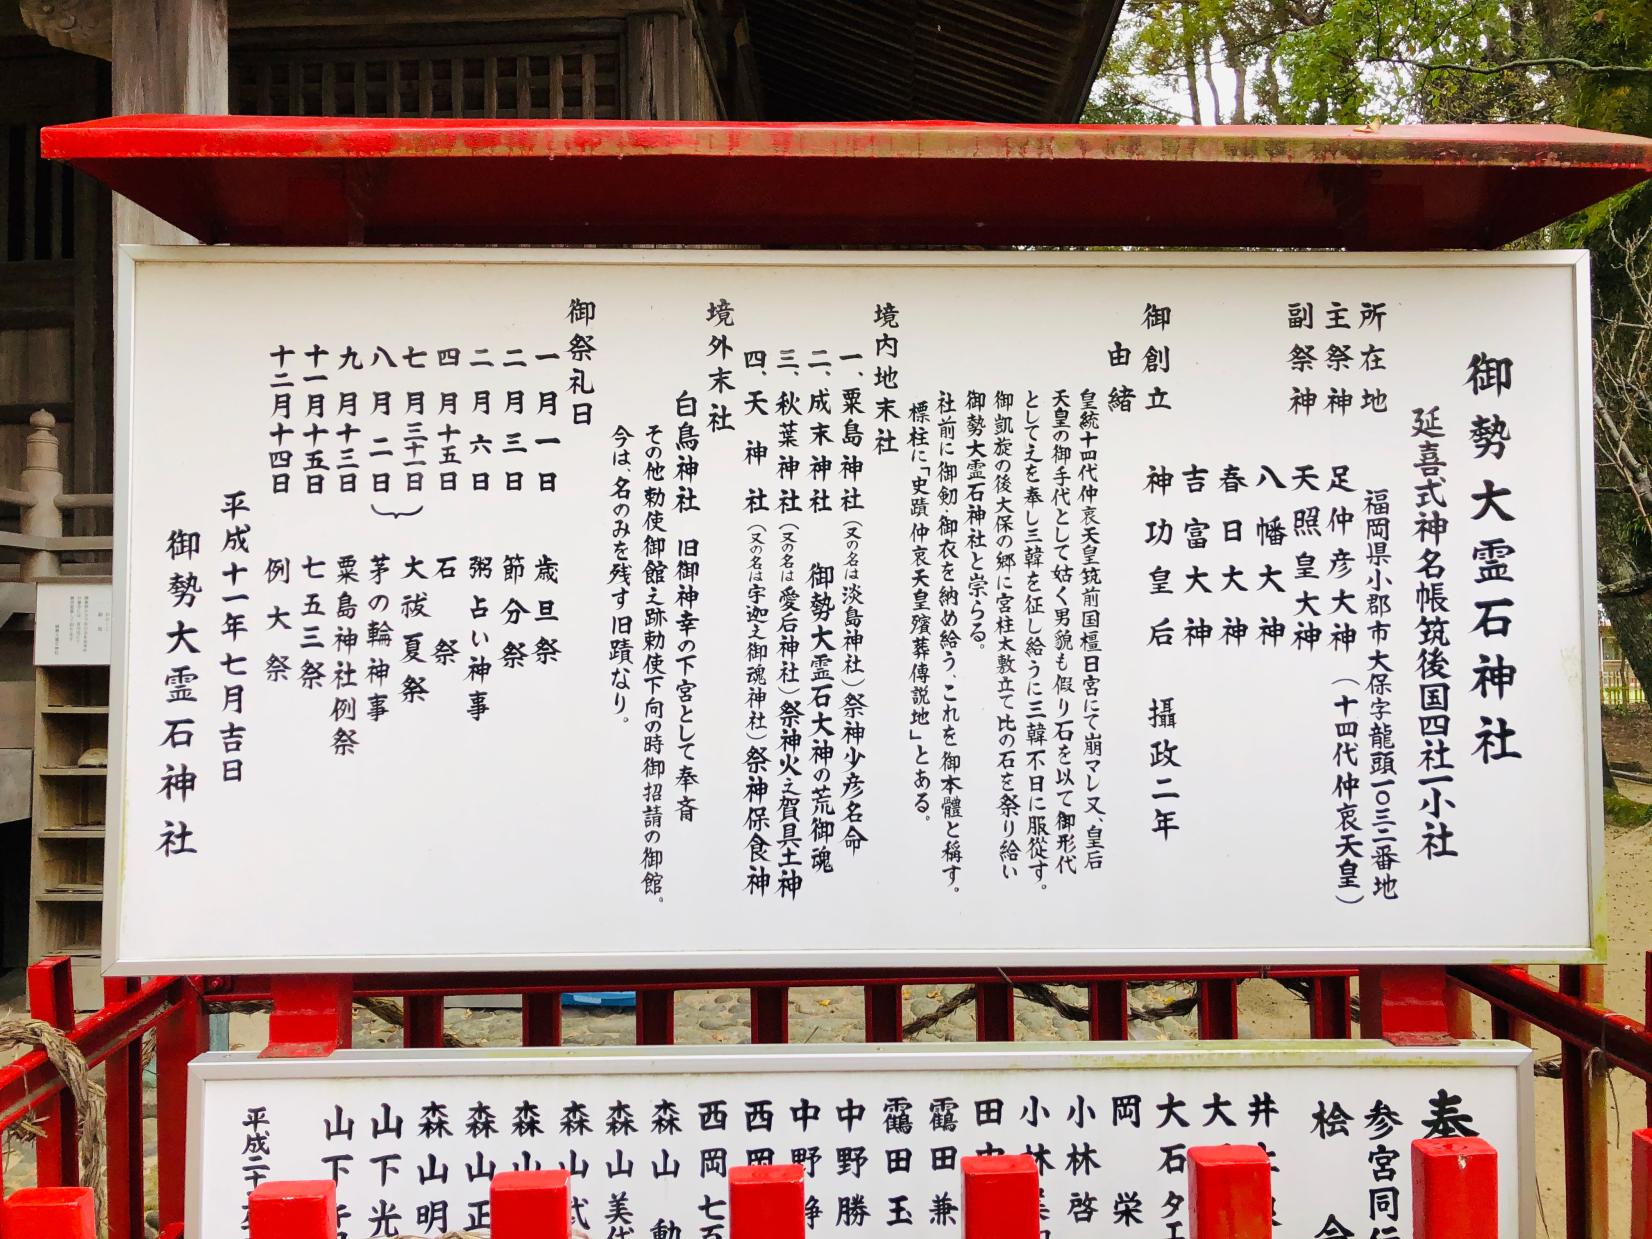 御勢大霊石神社
延喜式神名帳筑後国四社一小社
所在地 福岡県小郡市大保字龍頭一〇三二番地
主祭神 足仲彦大神(十四代仲哀天皇)
副祭神 天照皇大神
八幡大神
春日大神
吉富大神
御創立 神功皇后 攝政二年
由緒
皇統十四代仲哀天皇筑前国橿日宮にて崩マレ又、皇后
天皇の御手代として姑く男貌も假り石を以て御形代
としてえを奉し三韓を征し給うに三韓不日に服從す。
御凱旋の後大保の郷に宮柱太敷立て比の石を祭り給い
御勢大霊石神社と崇らる。
社前に御剱・御衣を納め給う、これを御本體と稱す。
標柱に「史蹟 仲哀天皇殯葬傳説地」とある。
境内地末社
一、粟島神社(又の名は淡島神社)祭神少彦名命
二、成末神社 御勢大霊石大神の荒御魂
三、秋葉神社(又の名は愛后神社)祭神火之賀具土神
四、天神社(又の名は宇迦之御魂神社)祭神保食神
境外末社
白鳥神社 旧御神幸の下宮として奉斎
その他勅使御館之跡勅使下向の時御招請の御館。
今は、名のみを残す旧蹟なり。
御祭礼日
一月一日 歳旦祭
二月三日 節分祭
二月六日 粥占い神事
四月十五日 石祭
七月三十一日 大祓夏祭
八月二日 茅の輪神事
九月十三日 粟島神社例祭
十一月十五日 七五三祭
十二月十四日 例大祭
平成十一年七月吉日
御勢大霊石神社
奉
参宮同
桧
井
大
大石タエ
岡 栄
小林啓
小林
田中
靏田兼
靏田玉
中野勝
中野静
西岡
西岡七
森山 勲
森山美代
森山武
森山
森山正
森山明
山下光
山下
平成二十